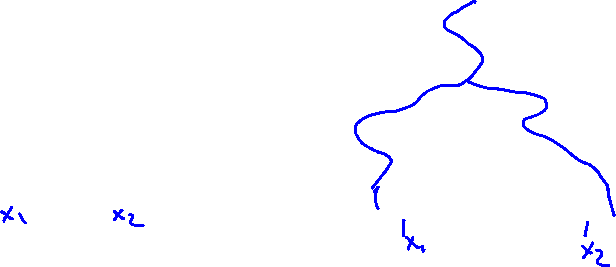 x₁ x₂ 'x₁ 'x₂